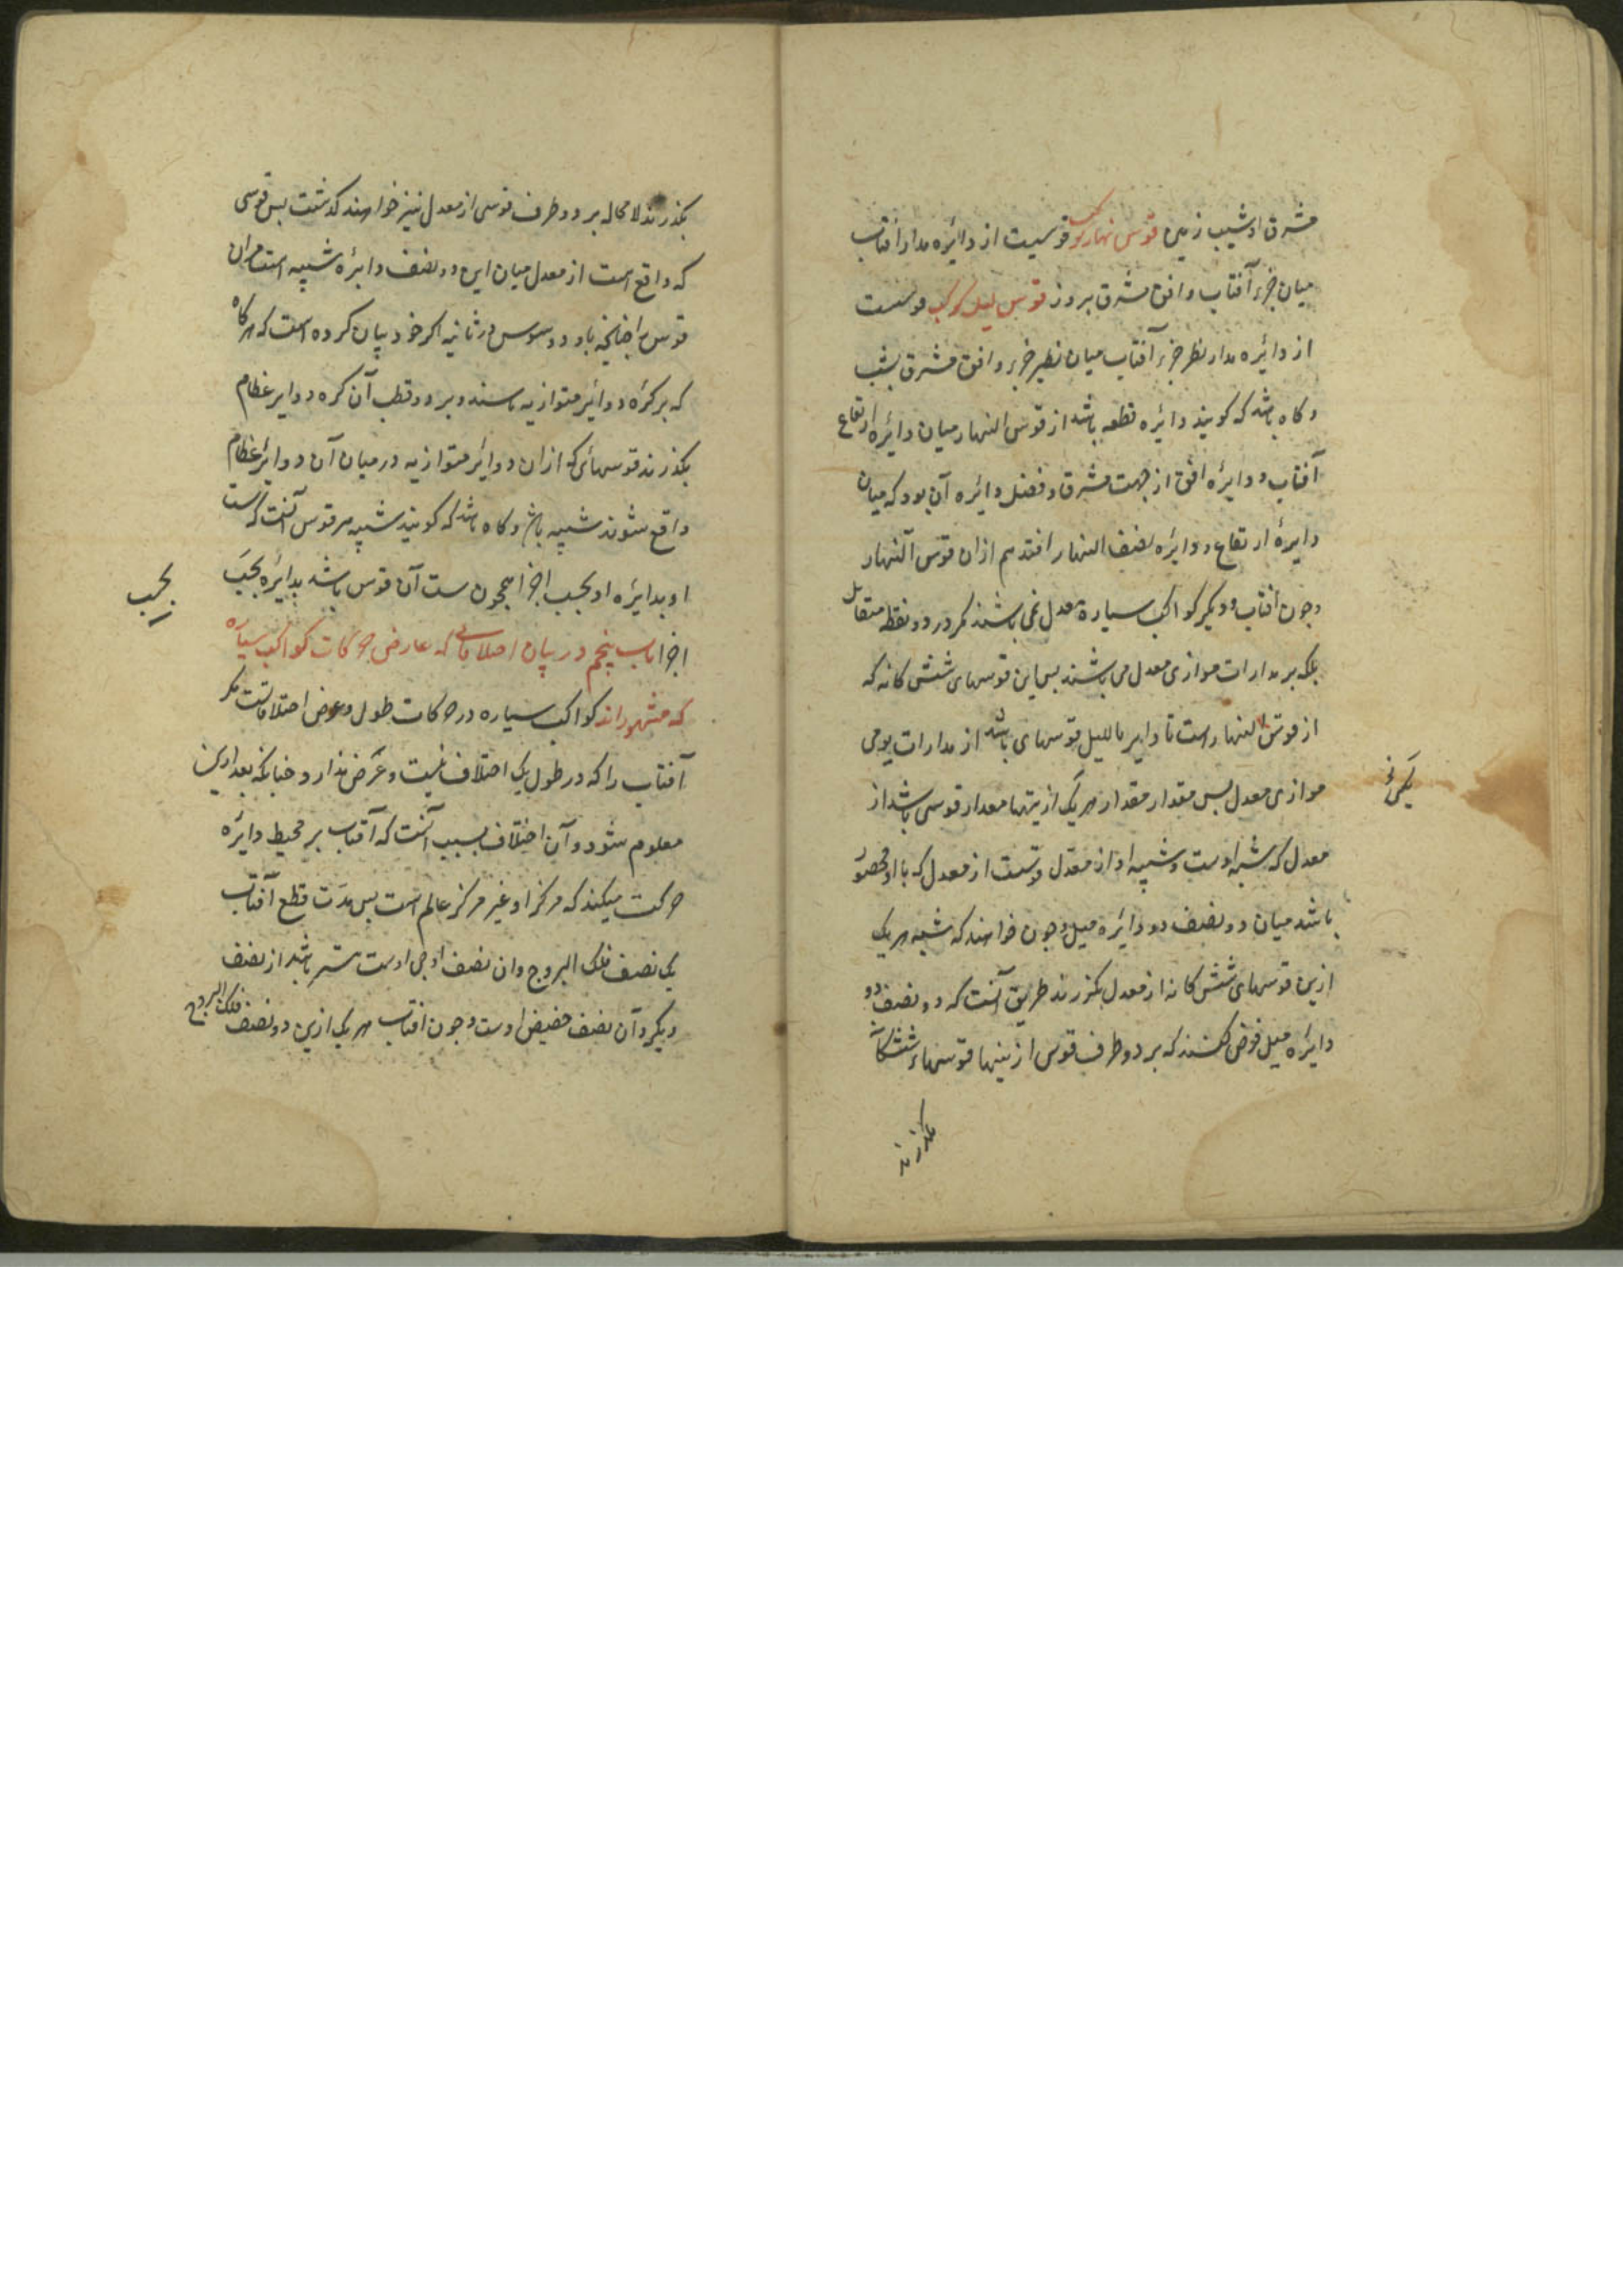 مشرق او شیب زمین قوس نهار کوکب قوسیت از دایره مدار افتاب
میان جزء آفتاب و افق مشرق بروز قوس لیل کوکب قوسست
از دائره مدار نظر جزء آفتاب میان نظیر جزء و افق مشرق بشب
و کاه باشد که کویند دائره قطعه باشد از قوس النهار میان دائره ارتفاع
آفتاب و دائره افق از جهت مشرق و فضل دائره آن بود که میان
دایرهٔ ارتفاع و دائره نصف النهار افتد هم ازان قوس النهار
وجون افتاب و دیکر کواکب سیاره بمعدل نمی باشند مکر در دو نقطه متقابل
بلکه بر مدارات موازی معدل می باشند بس این قوسهای شش کانه که
از قوس النهارست تا دایر باللیل قوسهای باشد از مدارات یومی
موازی معدل بس مقدار مقدار هر یک ازینها مقدار قوسی باشد از
معدل که شبه اوست و شبیه او از معدل قوسست از معدل که با او محصور
باشد میان دو نصف دو دائره میل وجون خواهند که شبه هر یک
ازین قوسهای شش کانه از معدل بکزرند طریق آنست که دو نصف دو
دائره میل فرض کنند که بر دو طرف قوس ازینها قوسهاء ششکانه
بکذرند
بکذرند لا محاله بر دو طرف قوسی از معدل نیز خواهند کذشت بس قوسی
که واقع است از معدل میان این دو نصف دائره شبیه است مران
قوس را جنانچه ثاودوسیوس در ثانیه اکر خود بیان کرده است که هرکاه
که بر کره دوائر متوازیه باشند و بر دو قطب آن کره دوایر عظام
بکذرند قوسهائی که ازان دوائر متوازیه در میان آن دوائر عظام
واقع شوند شبیه باشد و کاه باشد که کویند شبیه مر قوس آنست که نسبت
او بدائره او بحسب اجزا همچون نسبت آن قوس باشد بدائره بحسب
بحسب
اجزا باب پنجم در بیان اختلافاتی که عارض حرکات کواکب سیاره
که مشهوراند کواکب سیاره در حرکات طول و عرض اختلافاتست مکر
آفتاب را که در طول یک اختلاف نیست و عرض ندارد چنانکه بعد ازین
معلوم شود و آن اختلاف بسبب آنست که آفتاب بر محیط دایره
حرکت میکند که مرکز او غیر مرکز عالم است بس مدت قطع آفتاب
یک نصف فلک البروج وان نصف اوجی اوست بیشتر باشد از نصف
دیکر و آن نصف حضیض اوست وجون افتاب هر یک ازین دو نصف فلک البروج